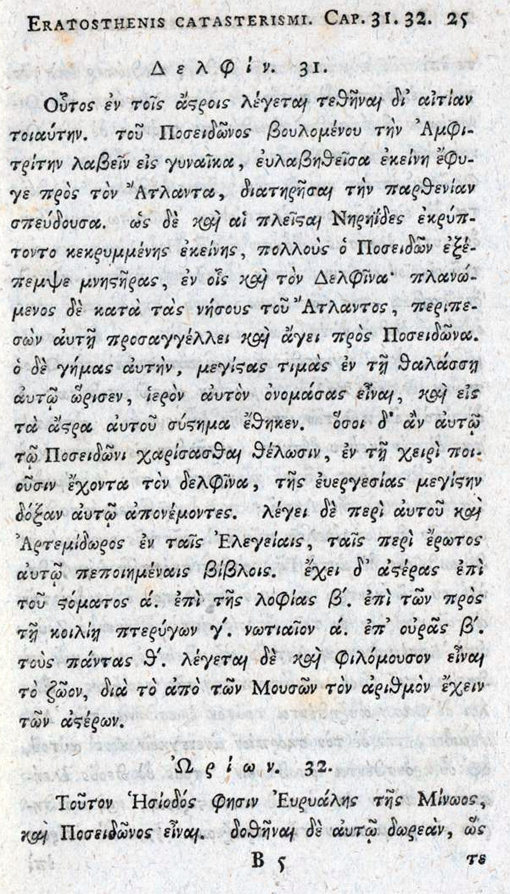 ERATOSTHENIS CATASTERISMI. CAP. 31. 32. 25
Δελφίν. 31.
Οὗτος ἐν τοῖς ἄϛροις λέγεται τεθῆναι δι' αἰτίαν
τοιαύτην. τοῦ Ποσειδῶνος βουλομένου τὴν Ἀμφι-
τρίτην λαβεῖν εἰς γυναῖκα, ἐυλαβηθεῖσα ἐκείνη ἔφυ-
γε πρὸς τὸν Ἄτλαντα, διατηρῆσαι τὴν παρθενίαν
σπεύδουσα. ὡς δὲ καὶ αἱ πλεῖϛαι Νηρηίδες ἐκρύπ-
τοντο κεκρυμμένης ἐκείνης, πολλοὺς ὁ Ποσειδῶν ἐξέ-
πεμψε μνηϛῆρας, ἐν οἷς καὶ τὸν Δελφῖνα· πλανώ-
μενος δὲ κατὰ τὰς νήσους τοῦ Ἄτλαντος, περιπε-
σὼν αὐτῇ προσαγγέλλει καὶ ἄγει πρὸς Ποσειδῶνα.
ὁ δὲ γήμας αὐτὴν, μεγίϛας τιμὰς ἐν τῇ θαλάσσῃ
αὐτῷ ὥρισεν, ἱερὸν αὐτὸν ὀνομάσας εἶναι, καὶ εἰς
τὰ ἄϛρα αὐτοῦ σύϛημα ἔθηκεν. ὅσοι δ' ἂν αὐτῷ
τῷ Ποσειδῶνι χαρίσασθαι θέλωσιν, ἐν τῇ χειρὶ ποι-
οῦσιν ἔχοντα τὸν δελφῖνα, τῆς ἐυεργεσίας μεγίϛην
δόξαν αὐτῷ ἀπονέμοντες. λέγει δὲ περὶ αὐτοῦ καὶ
Ἀρτεμίδωρος ἐν ταῖς Ἐλεγείαις, ταῖς περὶ ἔρωτος
αὐτῷ πεποιημέναις βίβλοις. ἔχει δ' ἀϛέρας ἐπὶ
τοῦ ϛόματος ά. ἐπὶ τῆς λοφίας β'. ἐπὶ τῶν πρὸς
τῇ κοιλίῃ πτερύγων γ'. νωτιαῖον ά. ἐπ' οὐρᾶς β'.
τοὺς πάντας θ'. λέγεται δὲ καὶ φιλόμουσον εἶναι
τὸ ζῶον, διὰ τὸ ἀπὸ τῶν Μουσῶν τὸν ἀριθμὸν ἔχειν
τῶν ἀϛέρων.
Ὠρίων. 32.
Τοῦτον Ἡσίοδός φησιν Ἐυρυάλης τῆς Μίνωος,
καὶ Ποσειδῶνος εἶναι. δοθῆναι δὲ αὐτῷ δωρεὰν, ὥς
B 5 τε